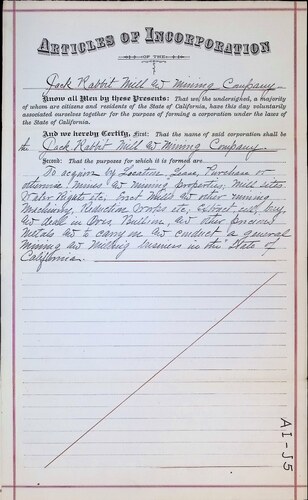 ARTICLES OF INCORPORATION
OF THE
Jack Rabbit Mill & Mining Company
Know all Men by these Presents: That we, the undersigned, a majority
of whom are citizens and residents of the State of California, have this day voluntarily
associated ourselves together for the purpose of forming a corporation under the laws of
the State of California.
And we hereby Certify, First: That the name of said corporation shall be
the Jack Rabbit Mill & Mining Company
Second: That the purposes for which it is formed are
To acquire by Location, Lease, Purchase or
otherwise Mines & Mining properties, Mill sites,
Water Rights etc, Erect Mills & other mining
Machinery, Reduction Works etc, Extract, sell, buy,
& deal in Ores Bullion, and other precious
Metals & to carry on and conduct a general
Mining & Milling business in the State of
California
AI-J5